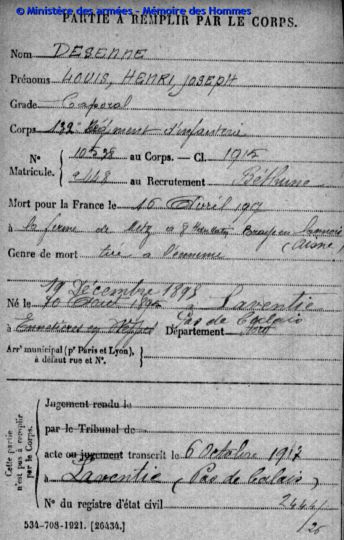 © Ministère des armées - Mémoire des Hommes
PARTIE A REMPLIR PAR LE CORPS.
Nom DESENNE
Prénoms LOUIS, HENRI JOSEPH
Grade Caporal
Corps Régiment d'infanterie
N° 10538 au Corps. — Cl. 1915
Matricule. 2148 au Recrutement Béthune
Mort pour la France le 16 Avril 1917
à la ferme de Metz à
(Aisne)
Genre de mort tué à l'ennemi
19 Décembre 1895 à Laventie
Né le
Pas de Calais
à Département
Arrt municipal (pr Paris et Lyon),
à défaut rue et N°.
Cette partie
n'est pas à remplir
par le Corps.
Jugement rendu le
par le Tribunal de
acte ou jugement transcrit le 6 Octobre 1917
à Laventie (Pas de Calais)
N° du registre d'état civil 2444/
/26
534-708-1921. [26434.]